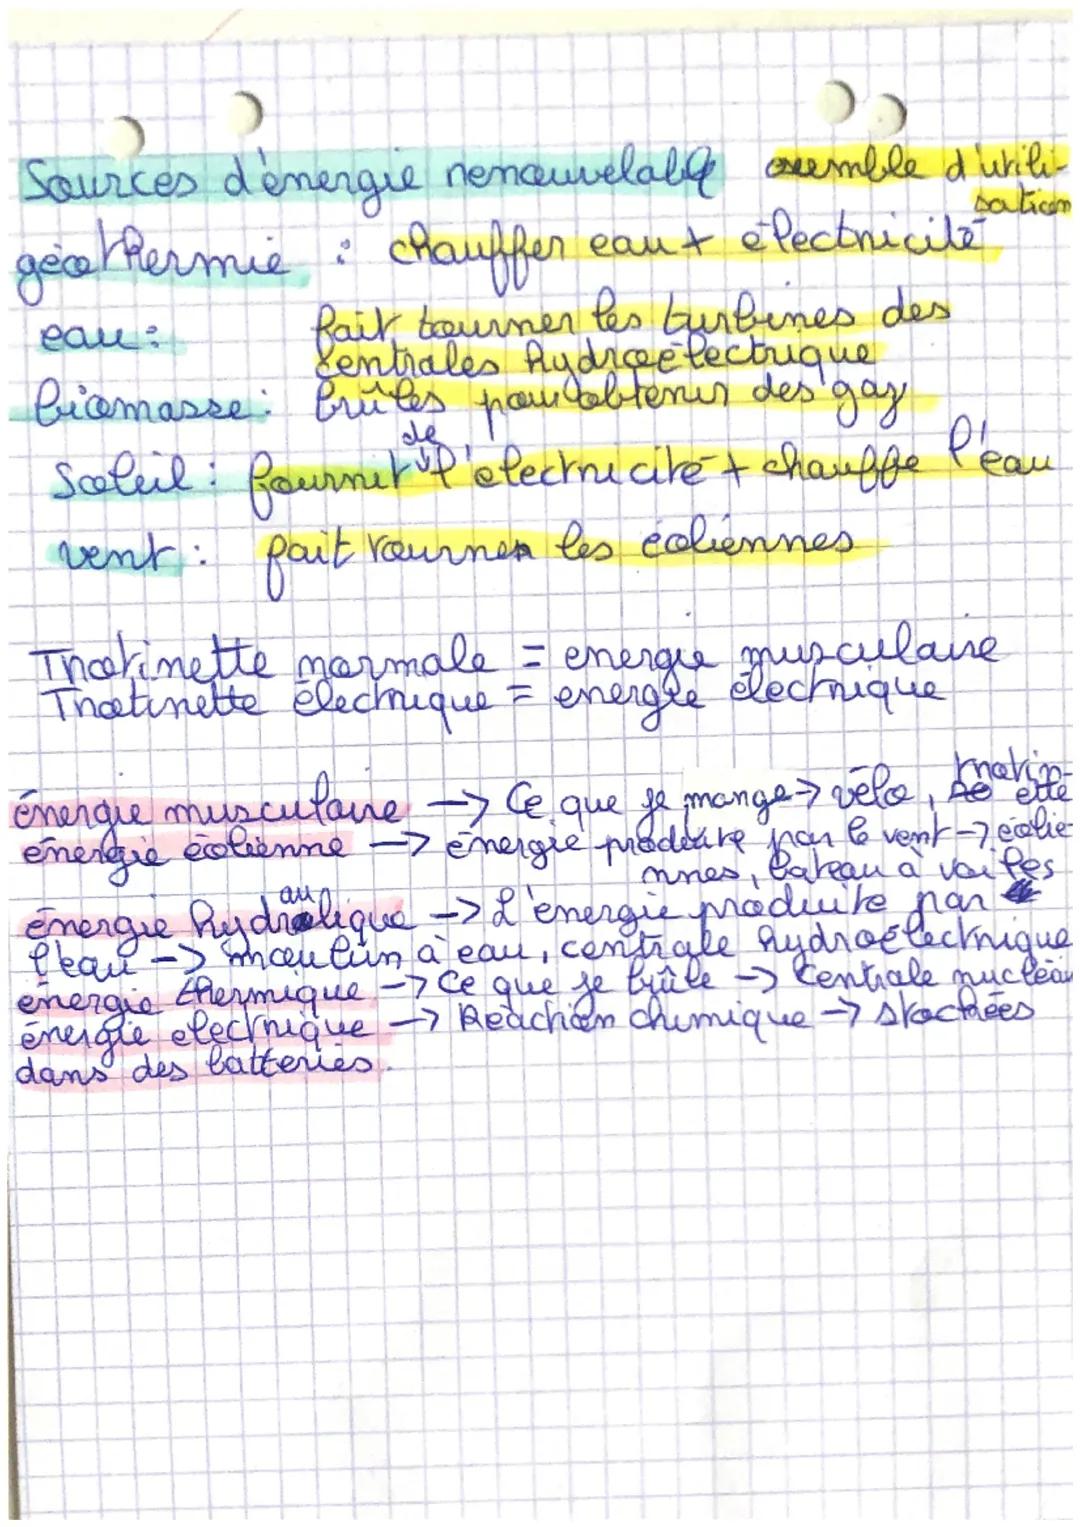 Sources d'énergie renouvelable exemble d'utili-
sation
géothermie : chauffer eau + électricité
eau : fait tourner les turbines des
centrales hydroélectrique
biomasse : brûles pour obtenir des gaz
de
Soleil : fournit l'électricité + chauffe l'eau
vent : fait tourner les éoliennes
Trotinette normale = energie musculaire
Trotinette électrique = energie électrique
trotin-
énergie musculaire -> Ce que je mange -> vélo, ette
énergie éolienne -> énergie produite par le vent -> éolie-
nnes, bateau à voiles
au
énergie hydrolique -> L'énergie produite par
l'eau -> moulin à eau, centrale hydroélectrique
énergie thermique -> Ce que je brûle -> Centrale nucléai
énergie electrique -> Réaction chimique -> stockées
dans des batteries.